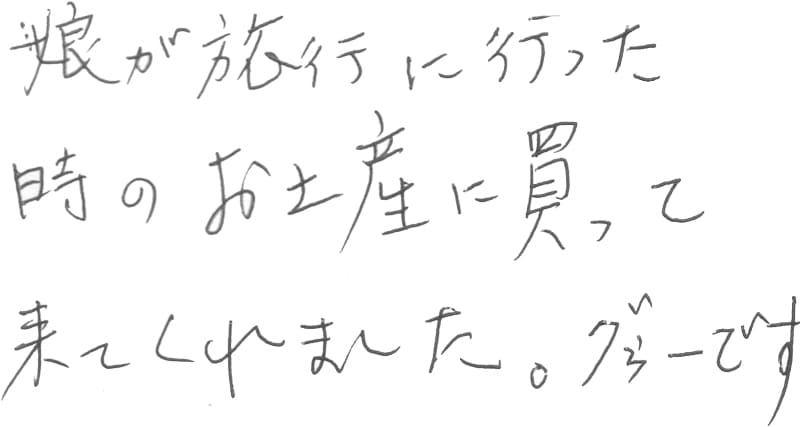 娘が旅行に行った
時のお土産に買って
来てくれました。グーです